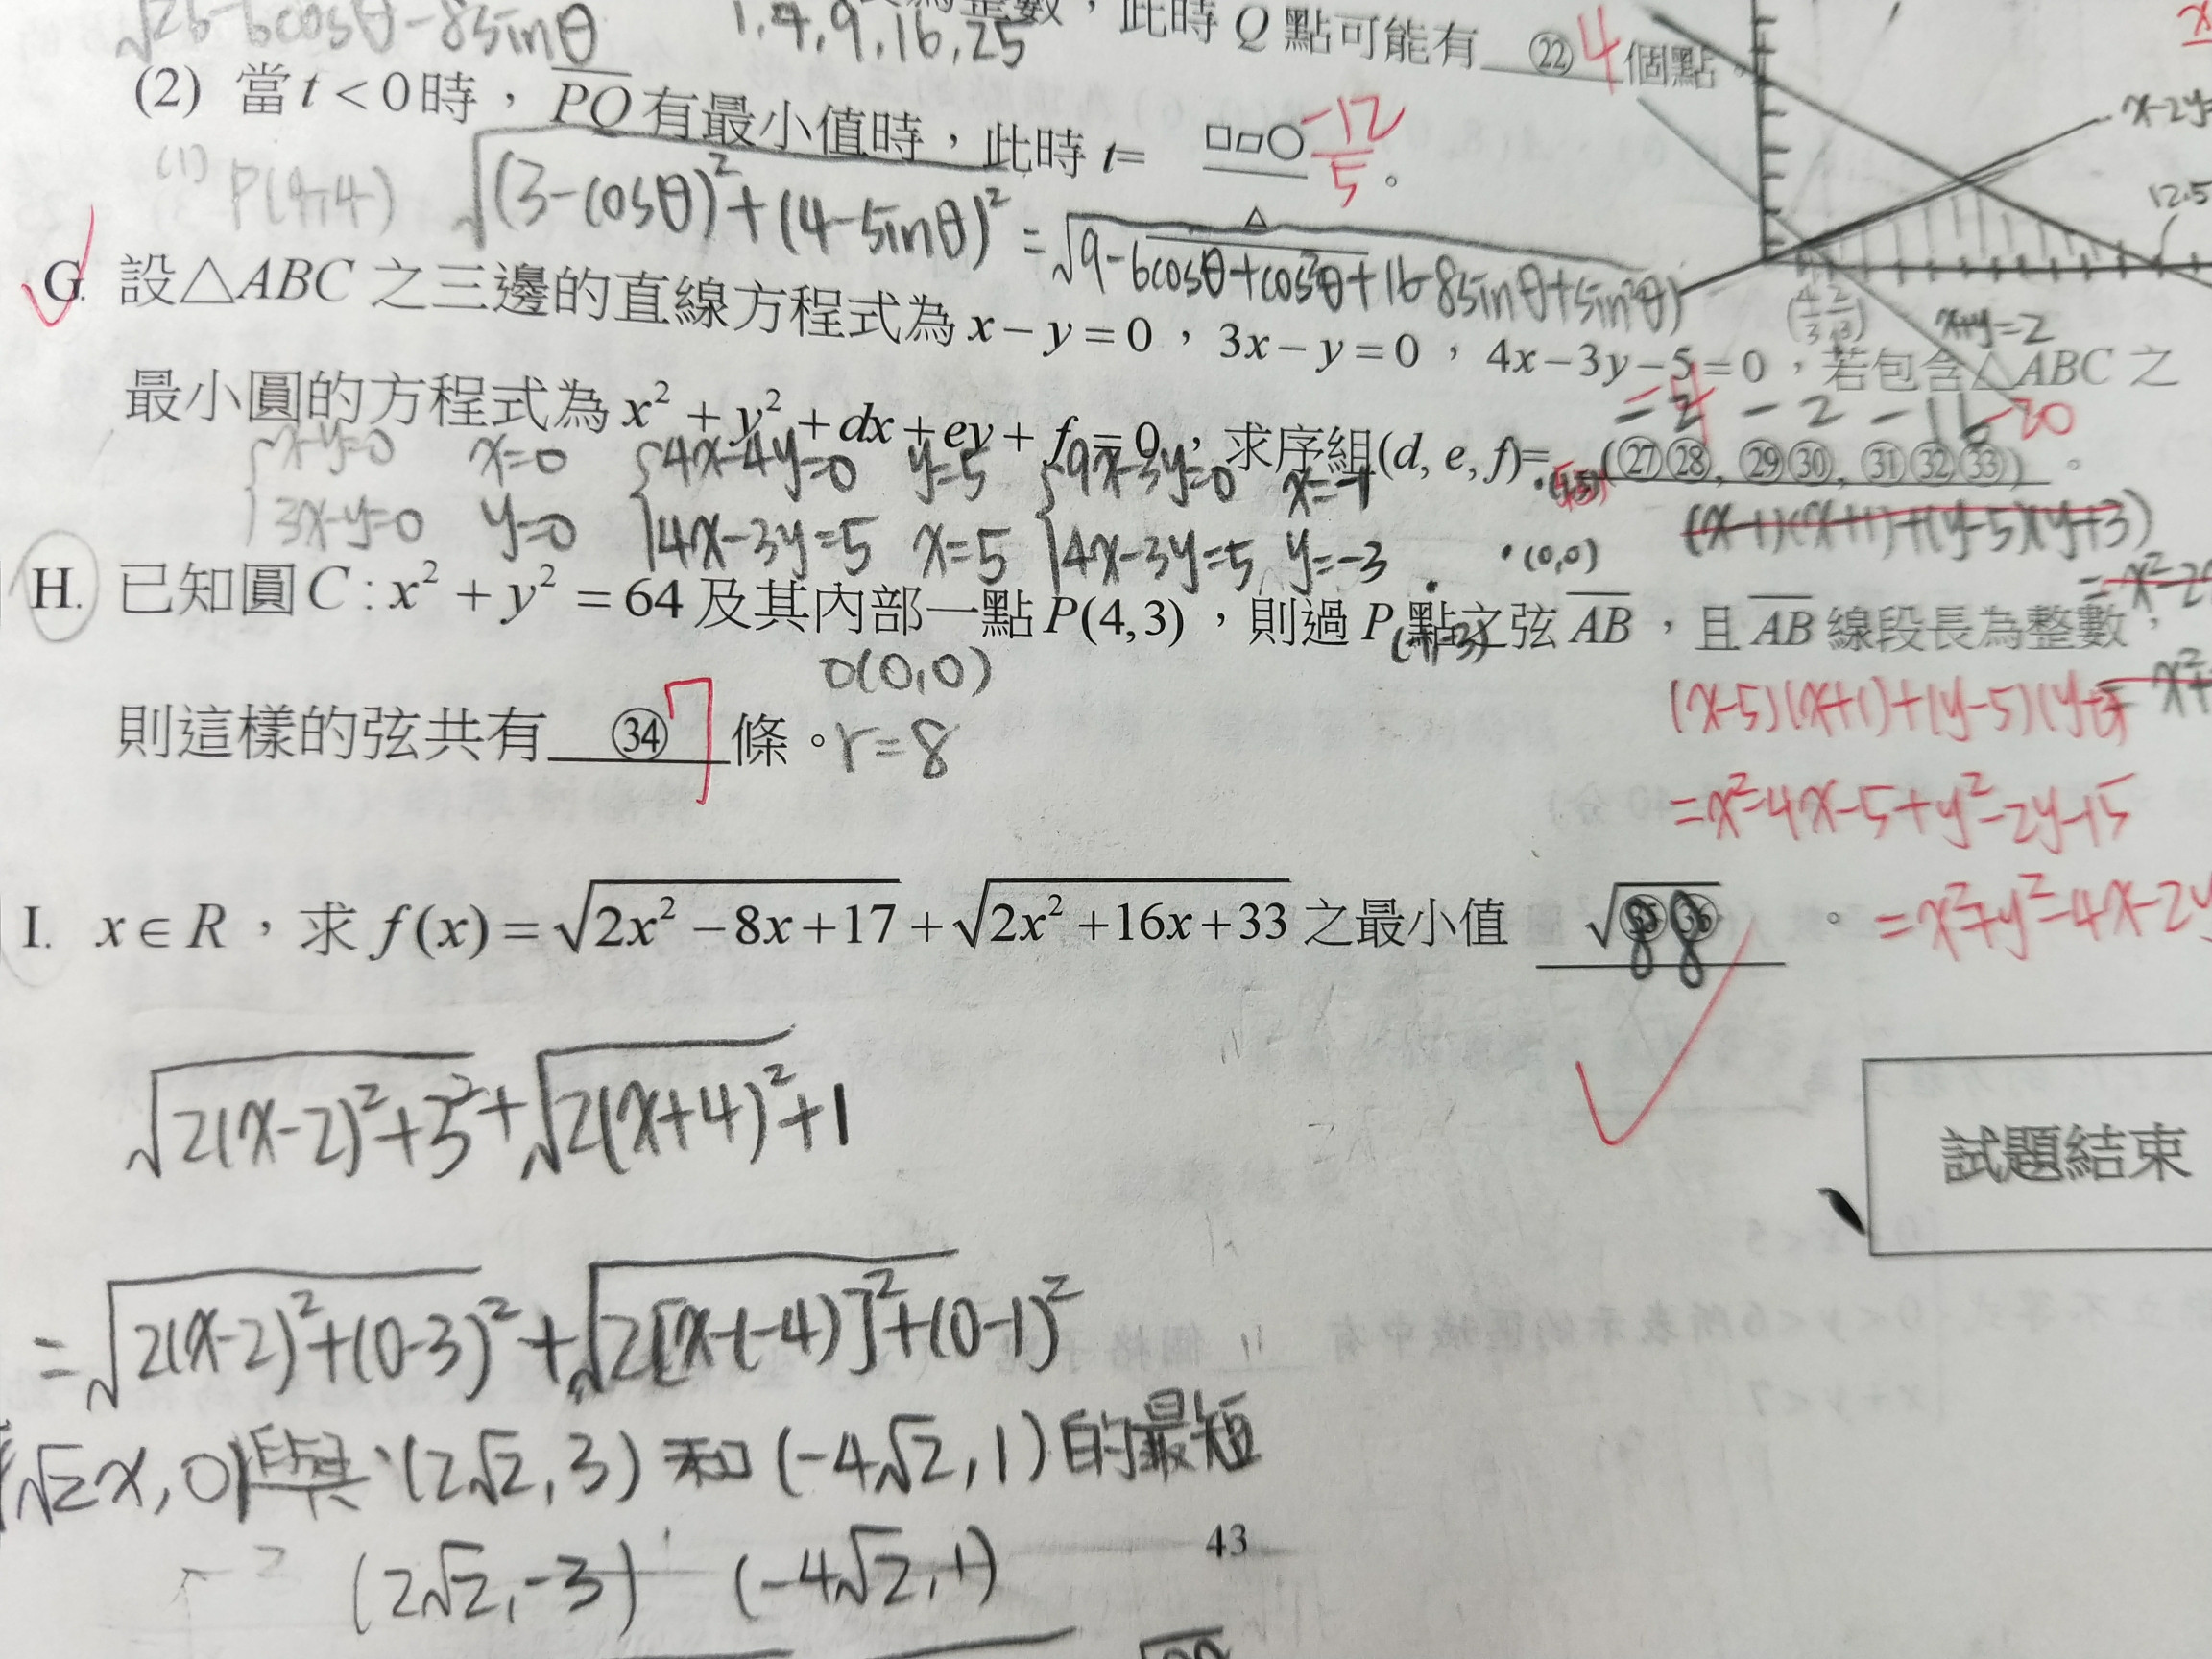 √26-6cosθ-8sinθ
1,4,9,16,25
整數，此時 Q 點可能有 ㉒ 4 個點
(2) 當 t < 0 時，PQ 有最小值時，此時 t= □□○ -12
△ 5 。
(1) P(9,4)
√(3-cosθ)²+(4-sinθ)² = √9-6cosθ+cos²θ+16-8sinθ+sin²θ
x-2y
12.5
x+y=2
G. 設△ABC 之三邊的直線方程式為 x − y = 0，3x − y = 0，4x − 3y − 5 = 0，若包含△ABC 之
最小圓的方程式為 x² + y² + dx + ey + f = 0，求序組(d, e, f)= (㉗㉘, ㉙㉚, ㉛㉜㉝) 。
-4 -2 -20
x-y=0 x=0 4x-4y=0 y=5 9x-3y=0 x=-1
3x-y=0 y=0 4x-3y=5 x=5 4x-3y=5 y=-3
(0,0)
(x-1)(x+1)+(y-5)(y+3)
H. 已知圓 C : x² + y² = 64 及其內部一點 P(4,3)，則過 P 點之弦 AB，且 AB 線段長為整數，
O(0,0)
則這樣的弦共有 ㉞ 7 條。
r=8
(x-5)(x+1)+(y-5)(y+3)
=x²-4x-5+y²-2y-15
=x²+y²-4x-2y
I. x ∈ R，求 f(x) = √2x² − 8x + 17 + √2x² + 16x + 33 之最小值 √㉟㊱ 。
88
√2(x-2)²+3² + √2(x+4)²+1
試題結束
= √2(x-2)²+(0-3)² + √2[x-(-4)]²+(0-1)²
(√2x, 0) 與 (2√2, 3) 和 (-4√2, 1) 的最短
43
(2√2, -3) (-4√2, 1)